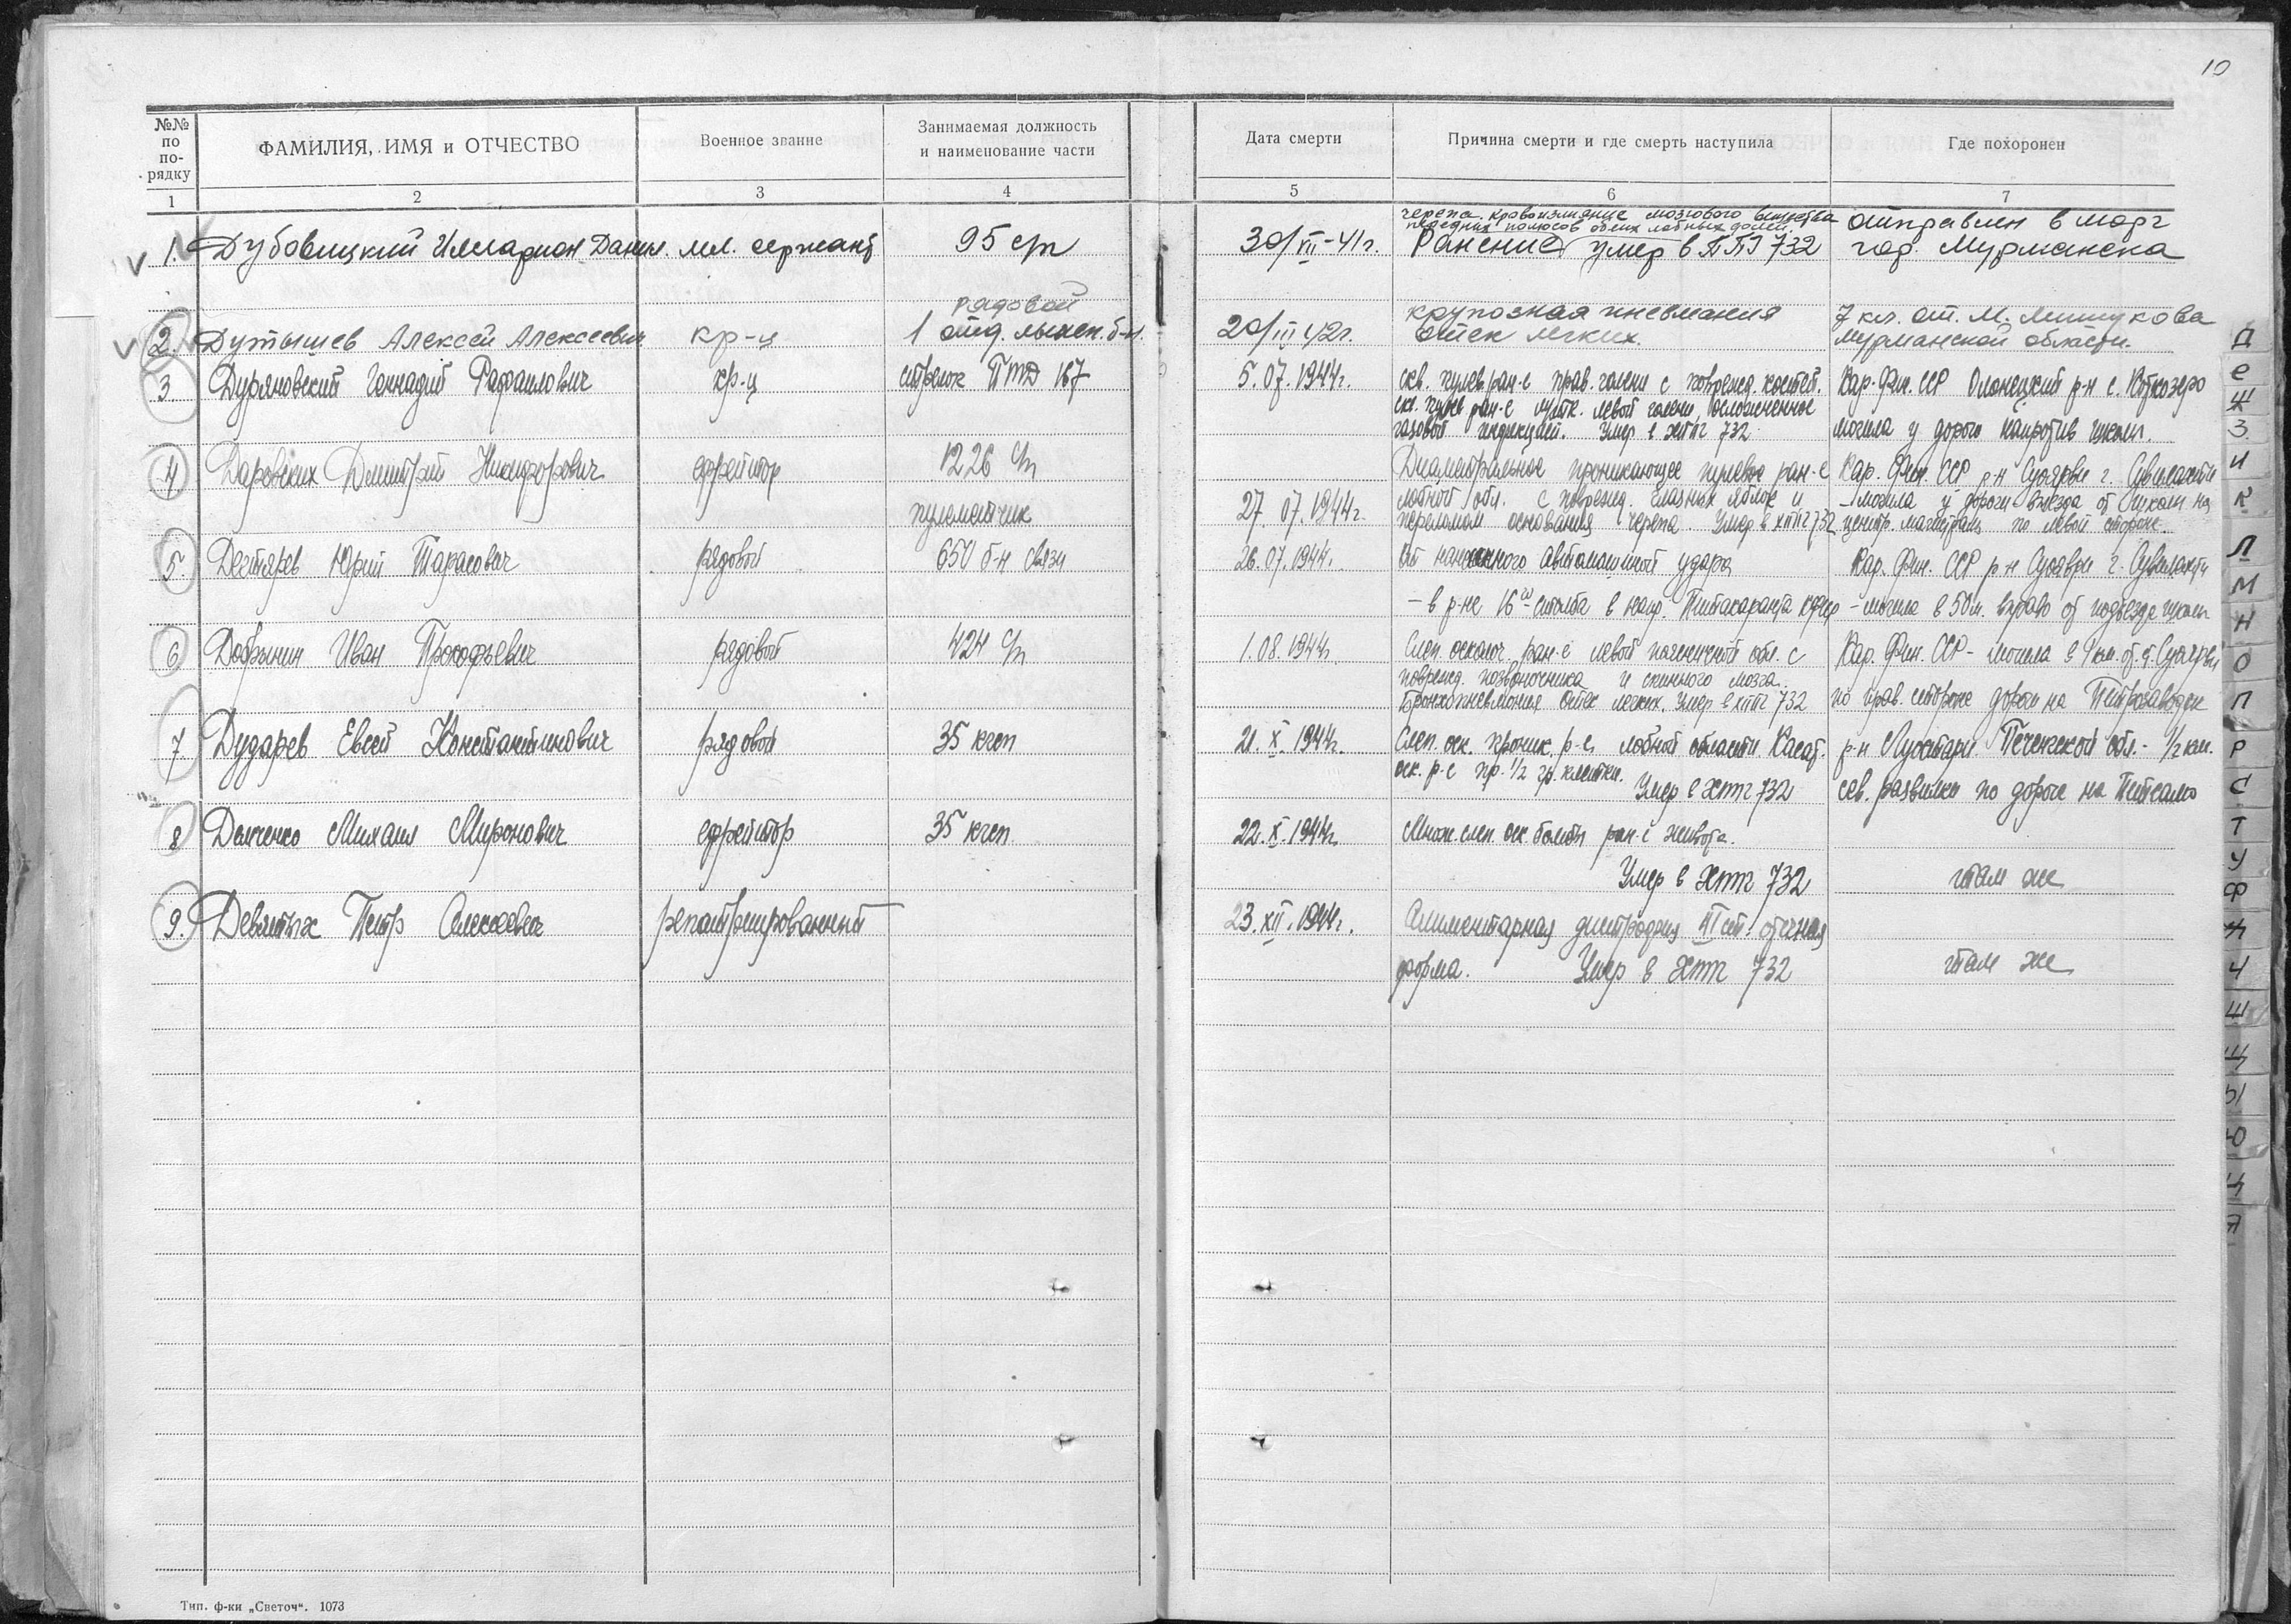 10
№№ по по-рядку
ФАМИЛИЯ, ИМЯ и ОТЧЕСТВО
Военное звание
Занимаемая должность
и наименование части
Дата смерти
Причина смерти и где смерть наступила
Где похоронен
1 2 3 4 5 6 7
1. Дубовицкий Илларион Данил. мл. сержант 95 сп 30/XII-41г.
черепа. кровоизлияние мозгового вещества
передних полюсов обеих лобных долей.
Ранение умер в ППГ 732
отправлен в морг
гор. Мурманска
2. Дутышев Алексей Алексеевич кр-ц
рядовой
1 отд. лыжн. б-н. 20/III 42г.
крупозная пневмания
отек легких.
7 кл. от. М. Мишукова
Мурманской области.
3 Дуряновский Геннадий Рафаилович кр-ц стрелок ПТД 167 5.07.1944г.
скв. пулев. ран-е прав. голени с поврежд. костей.
скв. пулев. ран-е мягк. левой голени, осложненное
газовой инфекцией. Умер в ХППГ 732
Кар. Фин. ССР Олонецкий р-н с. Коткозеро
могила у дороги напротив школы.
4 Даровских Дмитрий Никифорович ефрейтор 1226 с/п
пулеметчик 27.07.1944г.
Диаметральное проникающее пулевое ран-е
лобной обл. с поврежд. глазных яблок и
переломом основания черепа. Умер в ХППГ 732
Кар. Фин. ССР р-н Суоярви г. Сувилахти
- могила у дороги въезда от школы на
центр. магистраль по левой стороне.
5 Дегтярев Юрий Тарасович рядовой 650 б-н связи 26.07.1944г.
От нанесенного автомашиной удара
- в р-не 16го столба в напр. Питкаранта
Кар. Фин. ССР р-н Суоярви г. Сувилахти
- могила в 50 м. вправо от подъезда школы
6 Добрынин Иван Прокофьевич рядовой 424 с/п 1.08.1944г.
Слеп. осколоч. ран-е левой поясничной обл. с
поврежд. позвоночника и спинного мозга.
Бронхопневмония Отек легких. Умер в ХППГ 732
Кар. Фин. ССР - могила в 9 км. от г. Суоярви
по прав. стороне дороги на Петрозаводск
7 Дударев Евсей Константинович рядовой 35 кген 21.X.1944г.
Слеп. оск. проник. р-е лобной области. Касат.
оск. р-е пр. 1/2 гр. клетки.
Умер в ХППГ 732
р-н Луостари Печенгской обл. - 1/2 км.
сев. развилки по дороге на Петсамо
8 Дьяченко Михаил Миронович ефрейтор 35 кген 22.X.1944г.
Множ. слеп. оск. бомбы ран-е живота.
Умер в ХППГ 732
там же
9. Девятых Петр Алексеевич репатриированный 23.XII.1944г.
Алиментарная дистрофия III ст. отечная
форма. Умер в ХППГ 732
там же
Д
Е
Ж
З
И
К
Л
М
Н
О
П
Р
С
Т
У
Ф
Ч
Ш
Щ
Ы
Ю
Я
Тип. ф-ки „Светоч“. 1073